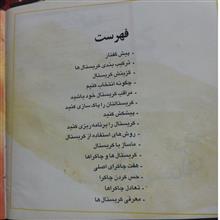 فهرست
- پیش گفتار
- ترکیب بندی کریستال‌ها
- گزینش کریستال
- چگونه انتخاب کنیم
- مراقب کریستال خود باشید
- کریستالتان را پاک‌سازی کنید
- پیشکش کنید
- کریستال را برنامه ریزی کنید
- روش‌های استفاده از کریستال
- ماساژ با کریستال
- کریستال‌ها و چاکراها
- هفت چاکرای اصلی
- حس کردن چاکرا
- تعادل چاکراها
- معرفی کریستال‌ها